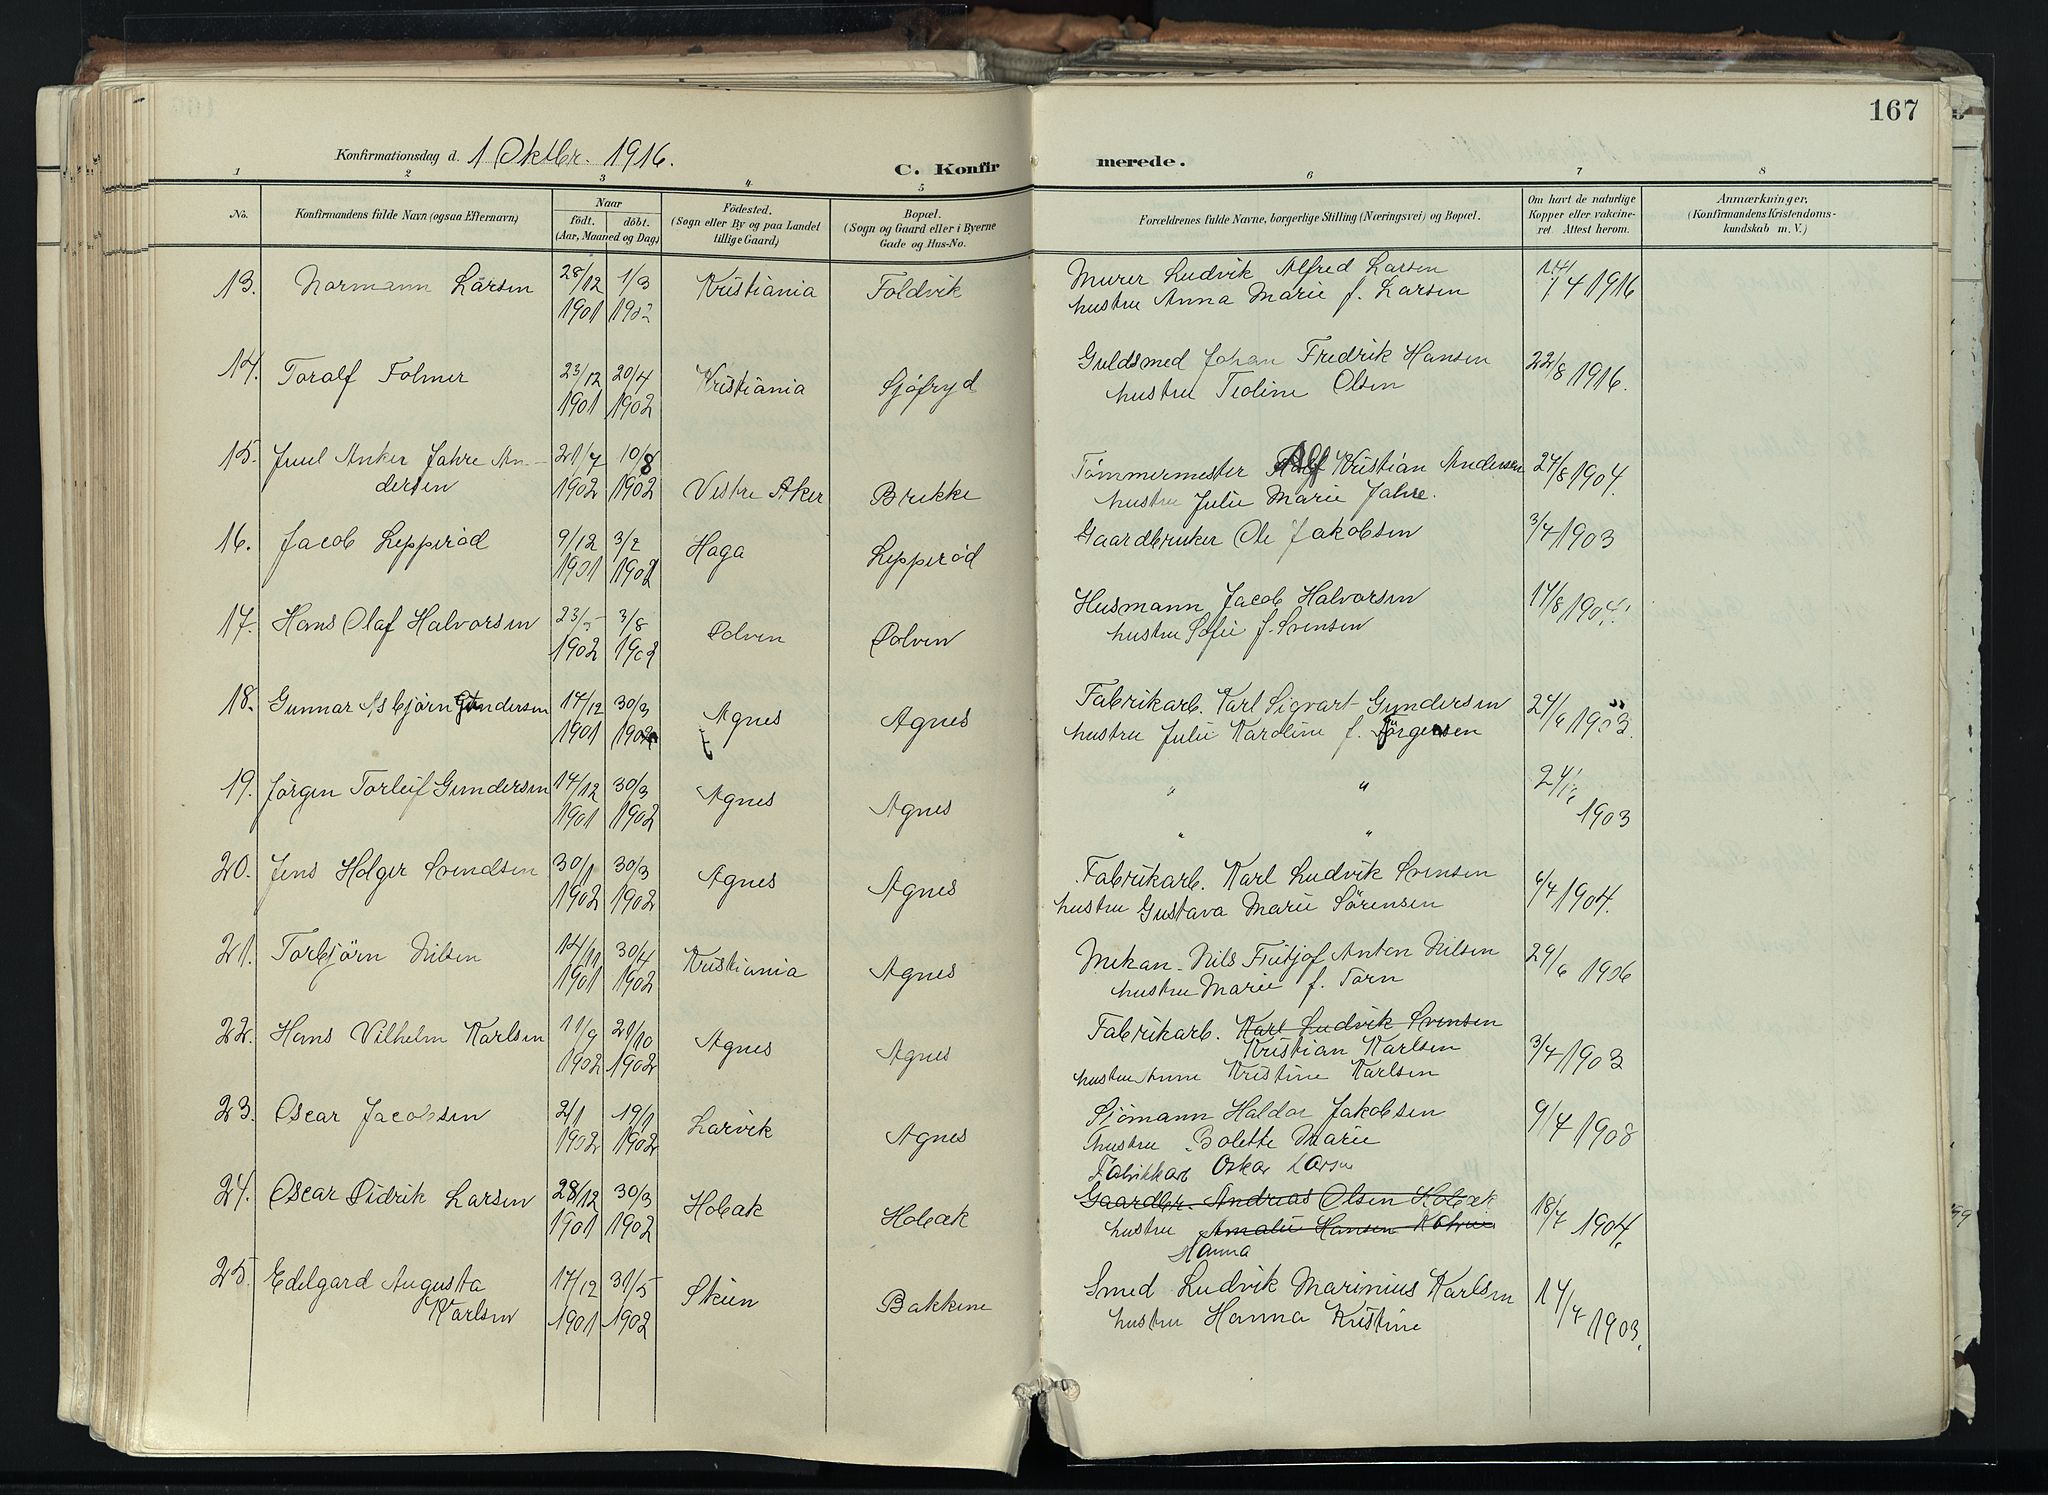 167
Konfirmationsdag d. 1 Oktbr. 1916.
C. Konfirmerede.
1 2 3 4 5 6 7 8
No. Konfirmandens fulde Navn (ogsaa Efternavn) Naar födt. döbt. (Aar, Maaned og Dag) Födested. (Sogn eller By og paa Landet tillige Gaard) Bopæl. (Sogn og Gaard eller i Byerne Gade og Hus-No. Forældrenes fulde Navne, borgerlige Stilling (Næringsvei) og Bopæl. Om havt de naturlige Kopper eller vakcineret. Attest herom. Anmærkninger, (Konfirmandens Kristendomskundskab m. V.)
13. Normann Larsen 28/12 1901 1/3 1902 Kristiania Foldvik Murer Ludvik Alfred Larsen
hustru Anna Marie f. Larsen 4 1916
14. Toralf Folmer 23/12 1901 20/4 1902 Kristiania Sjöfryd Guldsmed Johan Fredrik Hansen 22/8 1916.
hustru Teoline Olsen
15. Juul Anker Jahre An-
dersen 21/7 1902 10/8 1902 Vestre Aker Brekke Tömmermester Alf Kristian Andersen 27/8 1904.
hustru Julie Marie Jahre.
16. Jacob Lepperöd 9/12 1901 3/2 1902 Haga Lepperöd Gaardbruker Ole Jakobsen 3/7 1903
17. Hans Olaf Halvorsen 23/5 1902 3/8 1902 Dolven Dolven Husmann Jacob Halvorsen 17/8 1904.
hustru Sofie f. Svensen
18. Gunnar Asbjörn Gundersen 17/12 1901 30/3 1902 Agnes Agnes Fabrikarb. Karl Sigvart Gundersen 27/6 1903.
hustru Julie Karoline f. Jörgensen
19. Jörgen Torleif Gundersen 17/12 1901 30/3 1902 Agnes Agnes " " 27/6 1903
" "
20. Jens Holger Svendsen 30/1 1902 30/3 1902 Agnes Agnes Fabrikarb. Karl Ludvik Svensen 6/7 1904.
hustru Gustava Marie Sörensen
21. Torbjörn Nilsen 14/11 1901 30/4 1902 Kristiania Agnes Mekan. Nils Fritjof Anton Nilsen 29/6 1906
hustru Marie f. Torn
22. Hans Vilhelm Karlsen 11/9 1902 21/10 1902 Agnes Agnes Fabrikarb. Karl Ludvik Svensen
Kristian Karlsen 3/7 1903
hustru Anne Kristine Karlsen
23. Oscar Jacobsen 2/1 1902 19/1 1902 Larvik Agnes Sjömann Haldor Jakobsen 9/7 1908
hustru Bolette Marie
Fabrikkarb Oskar Larsen
24. Oscar Didrik Larsen 28/12 1901 30/3 1902 Hobæk Hobæk Gaardbr. Andreas Olsen Hobæk 18/7 1904.
hustru Amalie Hansen
Hanna
25. Edelgard Augusta
Karlsen 17/12 1901 31/5 1902 Skien Bakkene Smed Ludvik Marinius Karlsen 17/7 1903.
hustru Hanna Kristine